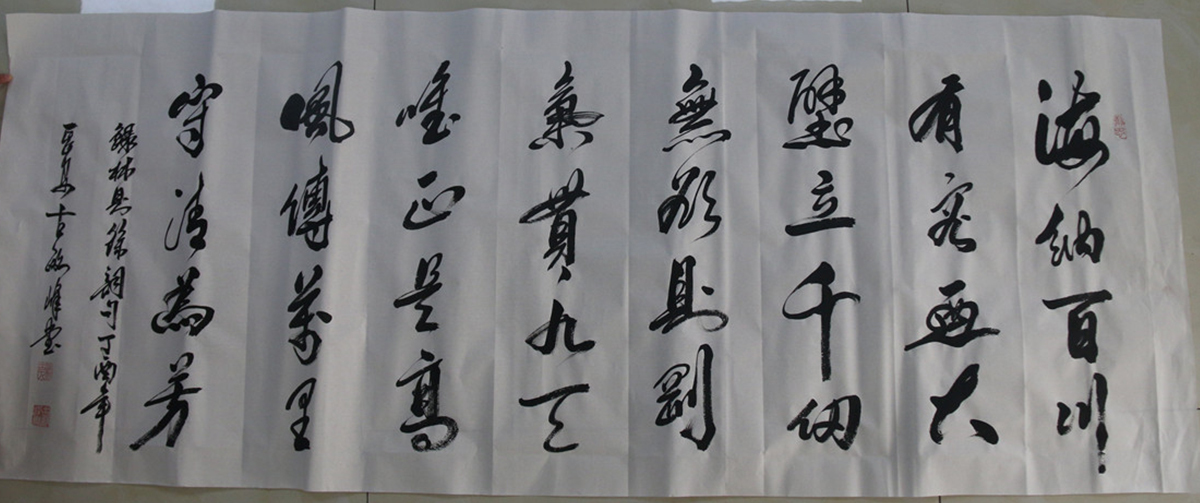 海納百川
有容迺大
壁立千仞
無欲則剛
氣貫九天
唯正是高
風傳萬里
守清為芳
錄林則徐詞句丁酉年
古峰書